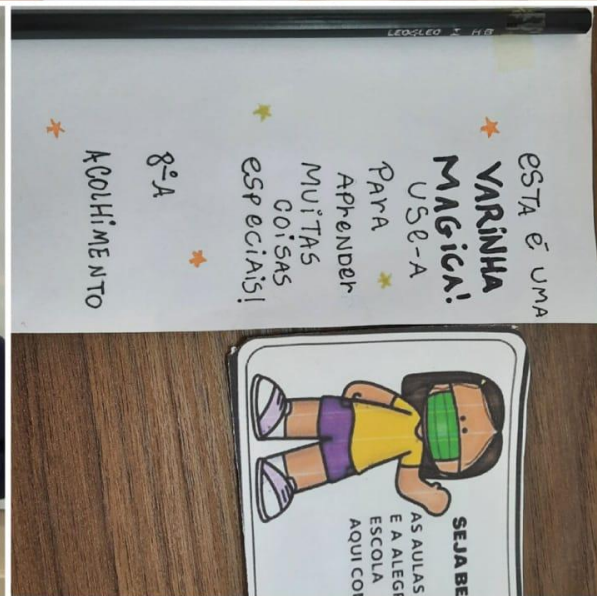 LEO&LEO
HB
esta é uma
VARINHA
MAGICA!
USe-A
PArA
Aprender
MUiTAS
COiSAS
esPeCiAiS!
8ºA
ACOLHiMENTO
SEJA BE
AS AULAS
E A ALEGR
ESCOLA
AQUI CO